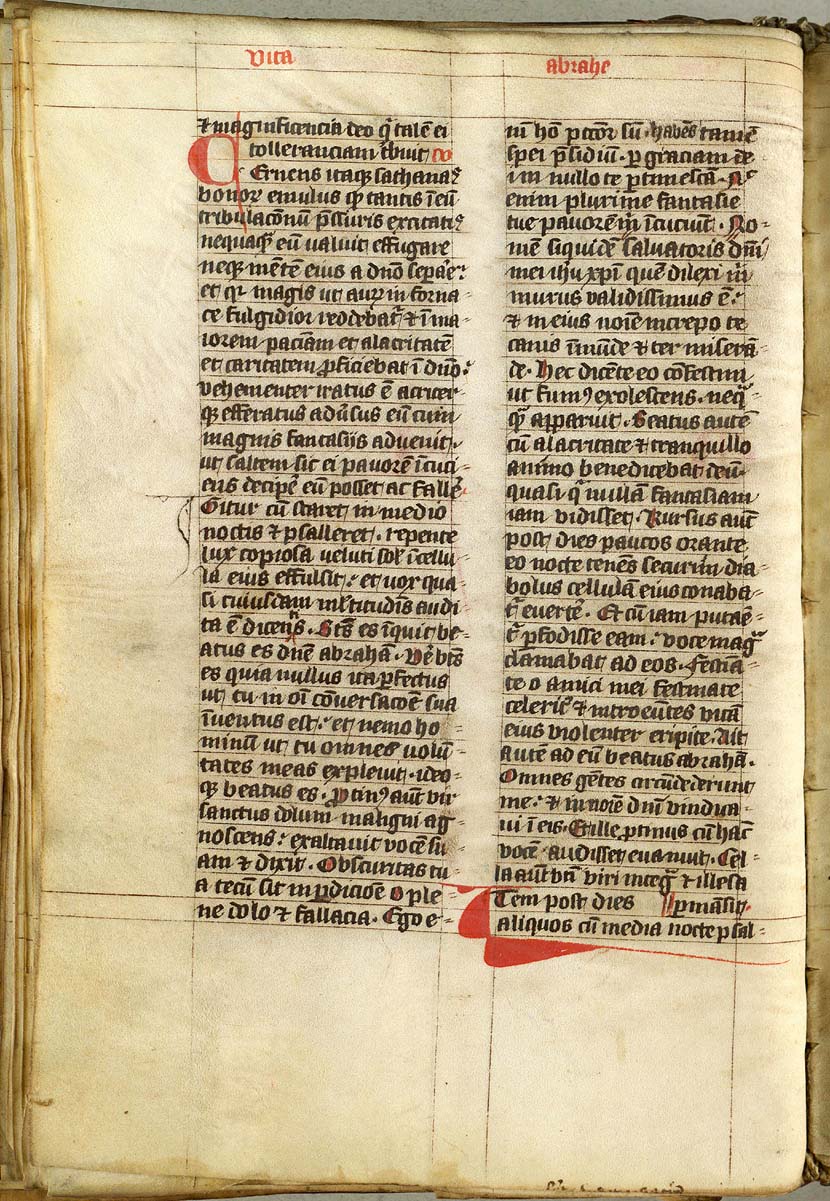 Vita
abrahe
& magnificencia deo q̄ talē ei
tolleranciam t̄buit
Cernens itaq; sathanas
bonor emulus qp tantis ī eū
tribulaconū p̄ssuris excitatis
nequaq; eū valuit effugare
neq; mētē eius a dn̄o sepāre:
et qz magis ut aurū in forna-
ce fulgidior reddebat̄ & ī ma-
iorem paciām et alacritatē
et caritatem ꝓficiebat ī dn̄o:
vehementer iratus ē acriter-
q; efferatus adūsus eū cum
magnis fantasijs advenit.
ut saltem sit ei pavorē īcuci-
ens deciꝑe eū posset ac fallē.
Gitur cū staret in medio
noctis & psalleret. repente
lux copiosa veluti sol ī cellu-
la eius effulsit: et vox qua-
si cuiusdam ml̄titudīs audi-
ta ē dicens. Btūs es īquit be-
atus es dn̄e abrahā. Vē bt̄us
es quia nullus ita ꝑfectus
ut tu in oī cōversacōe sua
īventus est: et nemo ho-
minū ut tu omnes volū-
tates meas explevit. ideo-
q; beatus es. ꝓtinꝰ aūt vir
sanctus dolum maligni ag-
noscens: exaltavit vocē su-
am & dixit. Obscuritas tu-
a tecū sit in ꝑdicioē o ple-
ne dolo & fallacia. Ego e-
nī hō pccōr sū. habēs tamē
spei p̄sidiū. ꝑ graciam de
i in nullo te ꝑtimesca. Nec
enim plurime fantasie
tue pavorē m̄ īcuciūt. No-
mē siquidē salvatoris dn̄i
mei ihu xp̄i quē dilexi m̄
murus validissimus ē:
& in eius noīe increpo te
canis īmūde & ter miserā-
de. Hec dicēte eo cōfestim
ut fumꝰ exolescens. neq̄-
q̄ apparuit. Beatus autē
cū alacritate & tranquillo
animo benedicebat deū.
quasi q̄ nullā fantasiam
iam vidisset. Rursus aūt
post dies paucos orante
eo nocte tenēs securim dia-
bolus cellulā eius conaba-
t̄ evertē. Et cū iam putaē-
t̄ ꝑfodisse eam: voce mag̅
clamabat ad eos. festīa-
te o amici mei festinate
celerit̄ & introeūtes vitā
eius violenter eripite. Ait
autē ad eū beatus abrahā.
Omnes gētes circūdederunt
me: & in noīe dn̄i vindica-
ui ī eis. Et ille ꝓtinus cū hāc
vocē audisset evanuit. Cel-
la aūt btī viri integ̅ & illesa
ꝑmāsit
Item post dies
aliquos cū media nocte psal-